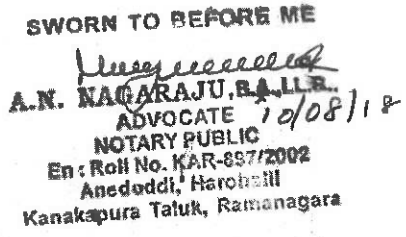 SWORN TO BEFORE ME
A.N. NAGARAJU, B.A., LL.B.,
ADVOCATE 10/08/18
NOTARY PUBLIC
En : Roll No. KAR-897/2002
Anedoddi, Harohalli
Kanakapura Taluk, Ramanagara